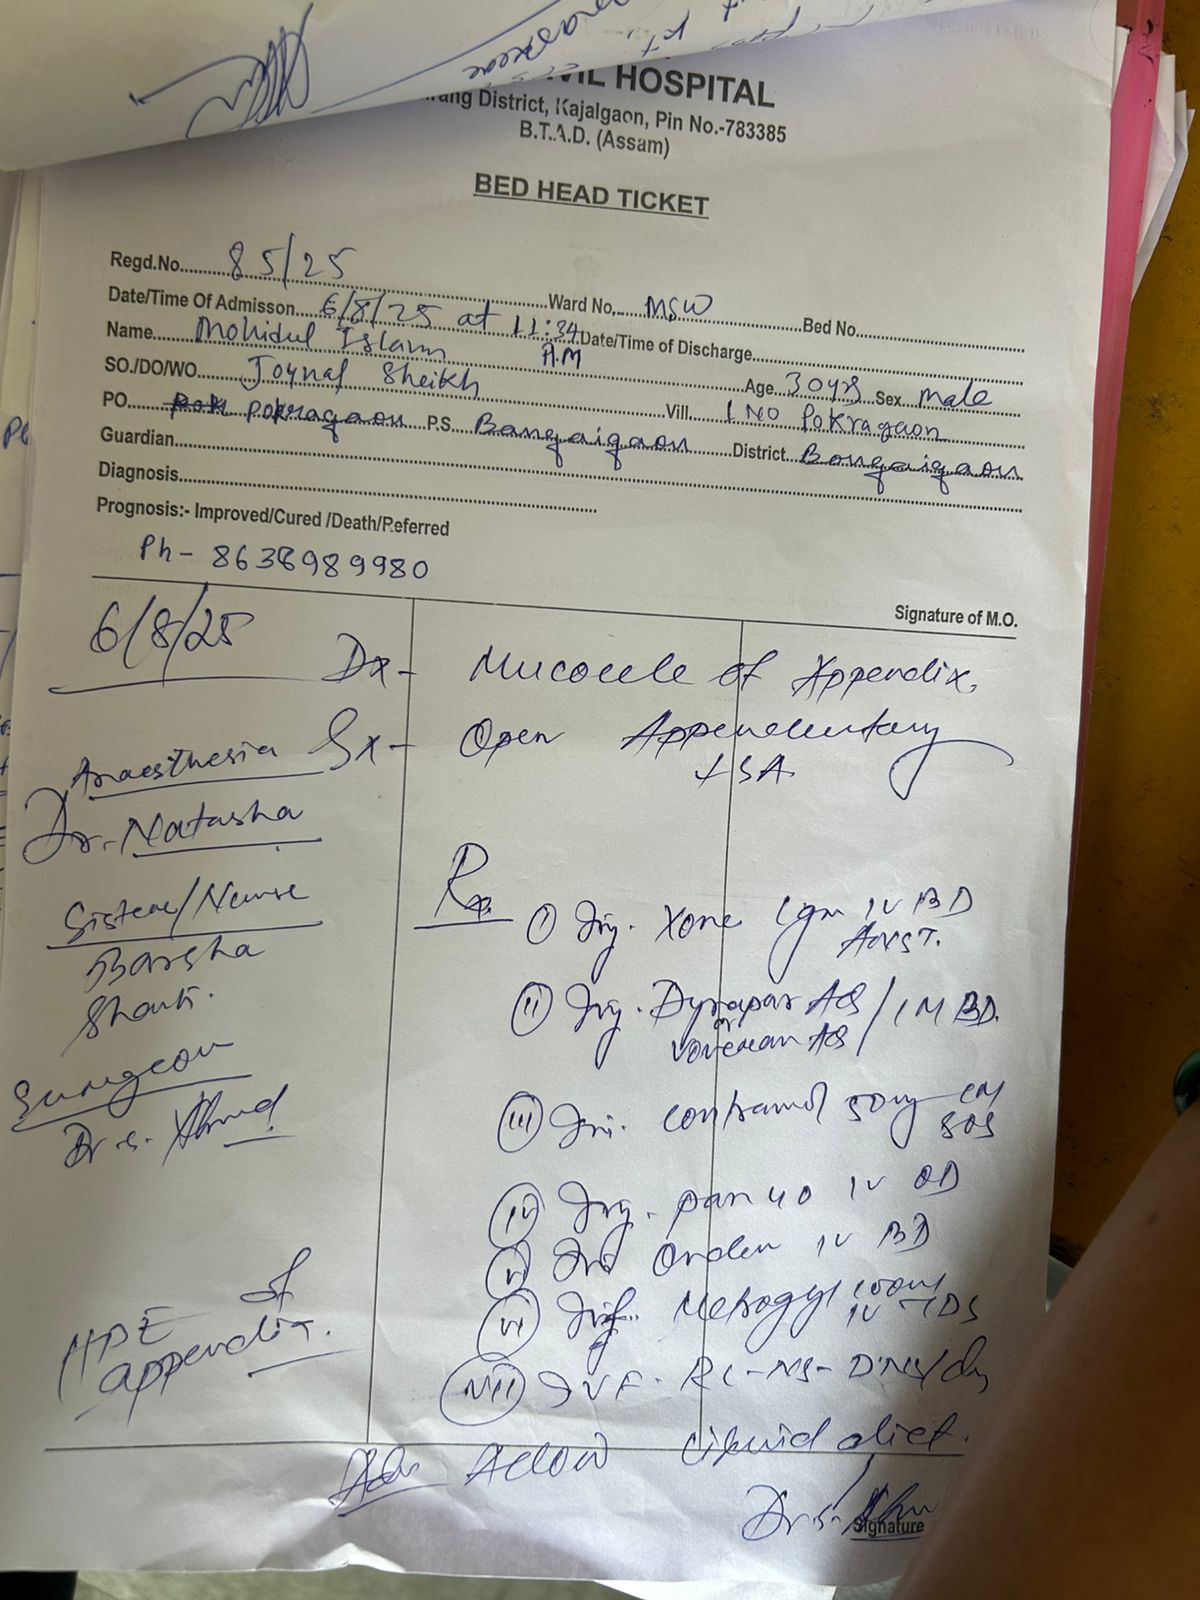 HOSPITAL
District, Kajalgaon, Pin No.-783385
B.T.A.D. (Assam)
BED HEAD TICKET
Regd.No. 85/25
Ward No. MSW Bed No.
Date/Time Of Admisson 6/8/25 at 11:34 A.M Date/Time of Discharge
Name Mohidul Islam Age 30yrs Sex male
SO./DO/WO. Joynal Sheikh Vill. 1 NO Pokragaon
PO. pokragaon P.S. Bangaigaon District Bongaigaon
Guardian
Diagnosis
Prognosis:- Improved/Cured /Death/Referred
Ph- 8638989980
Signature of M.O.
6/8/25
Dx- Mucocele of Appendix.
Sx- Open Appendectomy
SA
Anaesthesia
Dr. Natasha
Sister/Nurse
Barsha
Shanti.
Surgeon
Dr. S. Ahmed
HPE of appendix.
Rx
(I) Inj. Xone 1gm IV BD
AKST.
(II) Inj. Dynapar AQ / IM BD.
or
Voveran AQ
(III) Inj. Contramol 50mg IM
SOS
(IV) Inj. pan 40 IV OD
(V) Inj Ondem IV BD
(VI) Inj. Metrogyl 100ml
IV TDS
(VII) IVF. RL-NS-DNS/
Adv Allow liquid diet.
Dr. S.
Signature